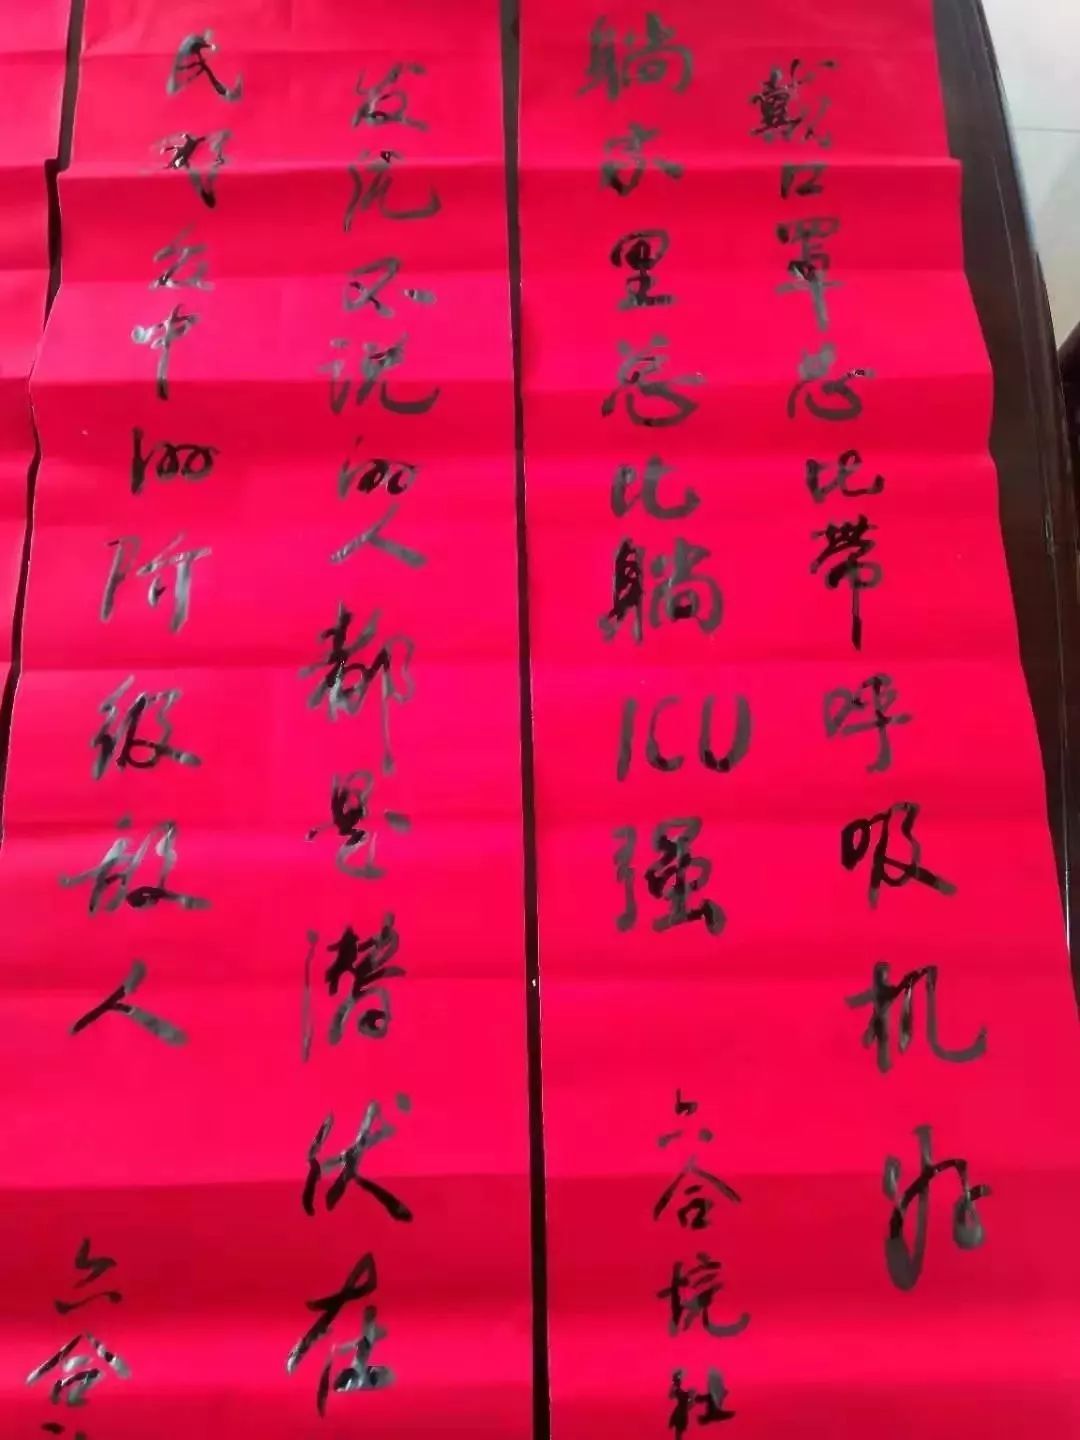 戴口罩总比带呼吸机好
躺家里总比躺ICU强
六合垸社
发烧不说的人都是潜伏在
民群众中的阶级敌人
六合